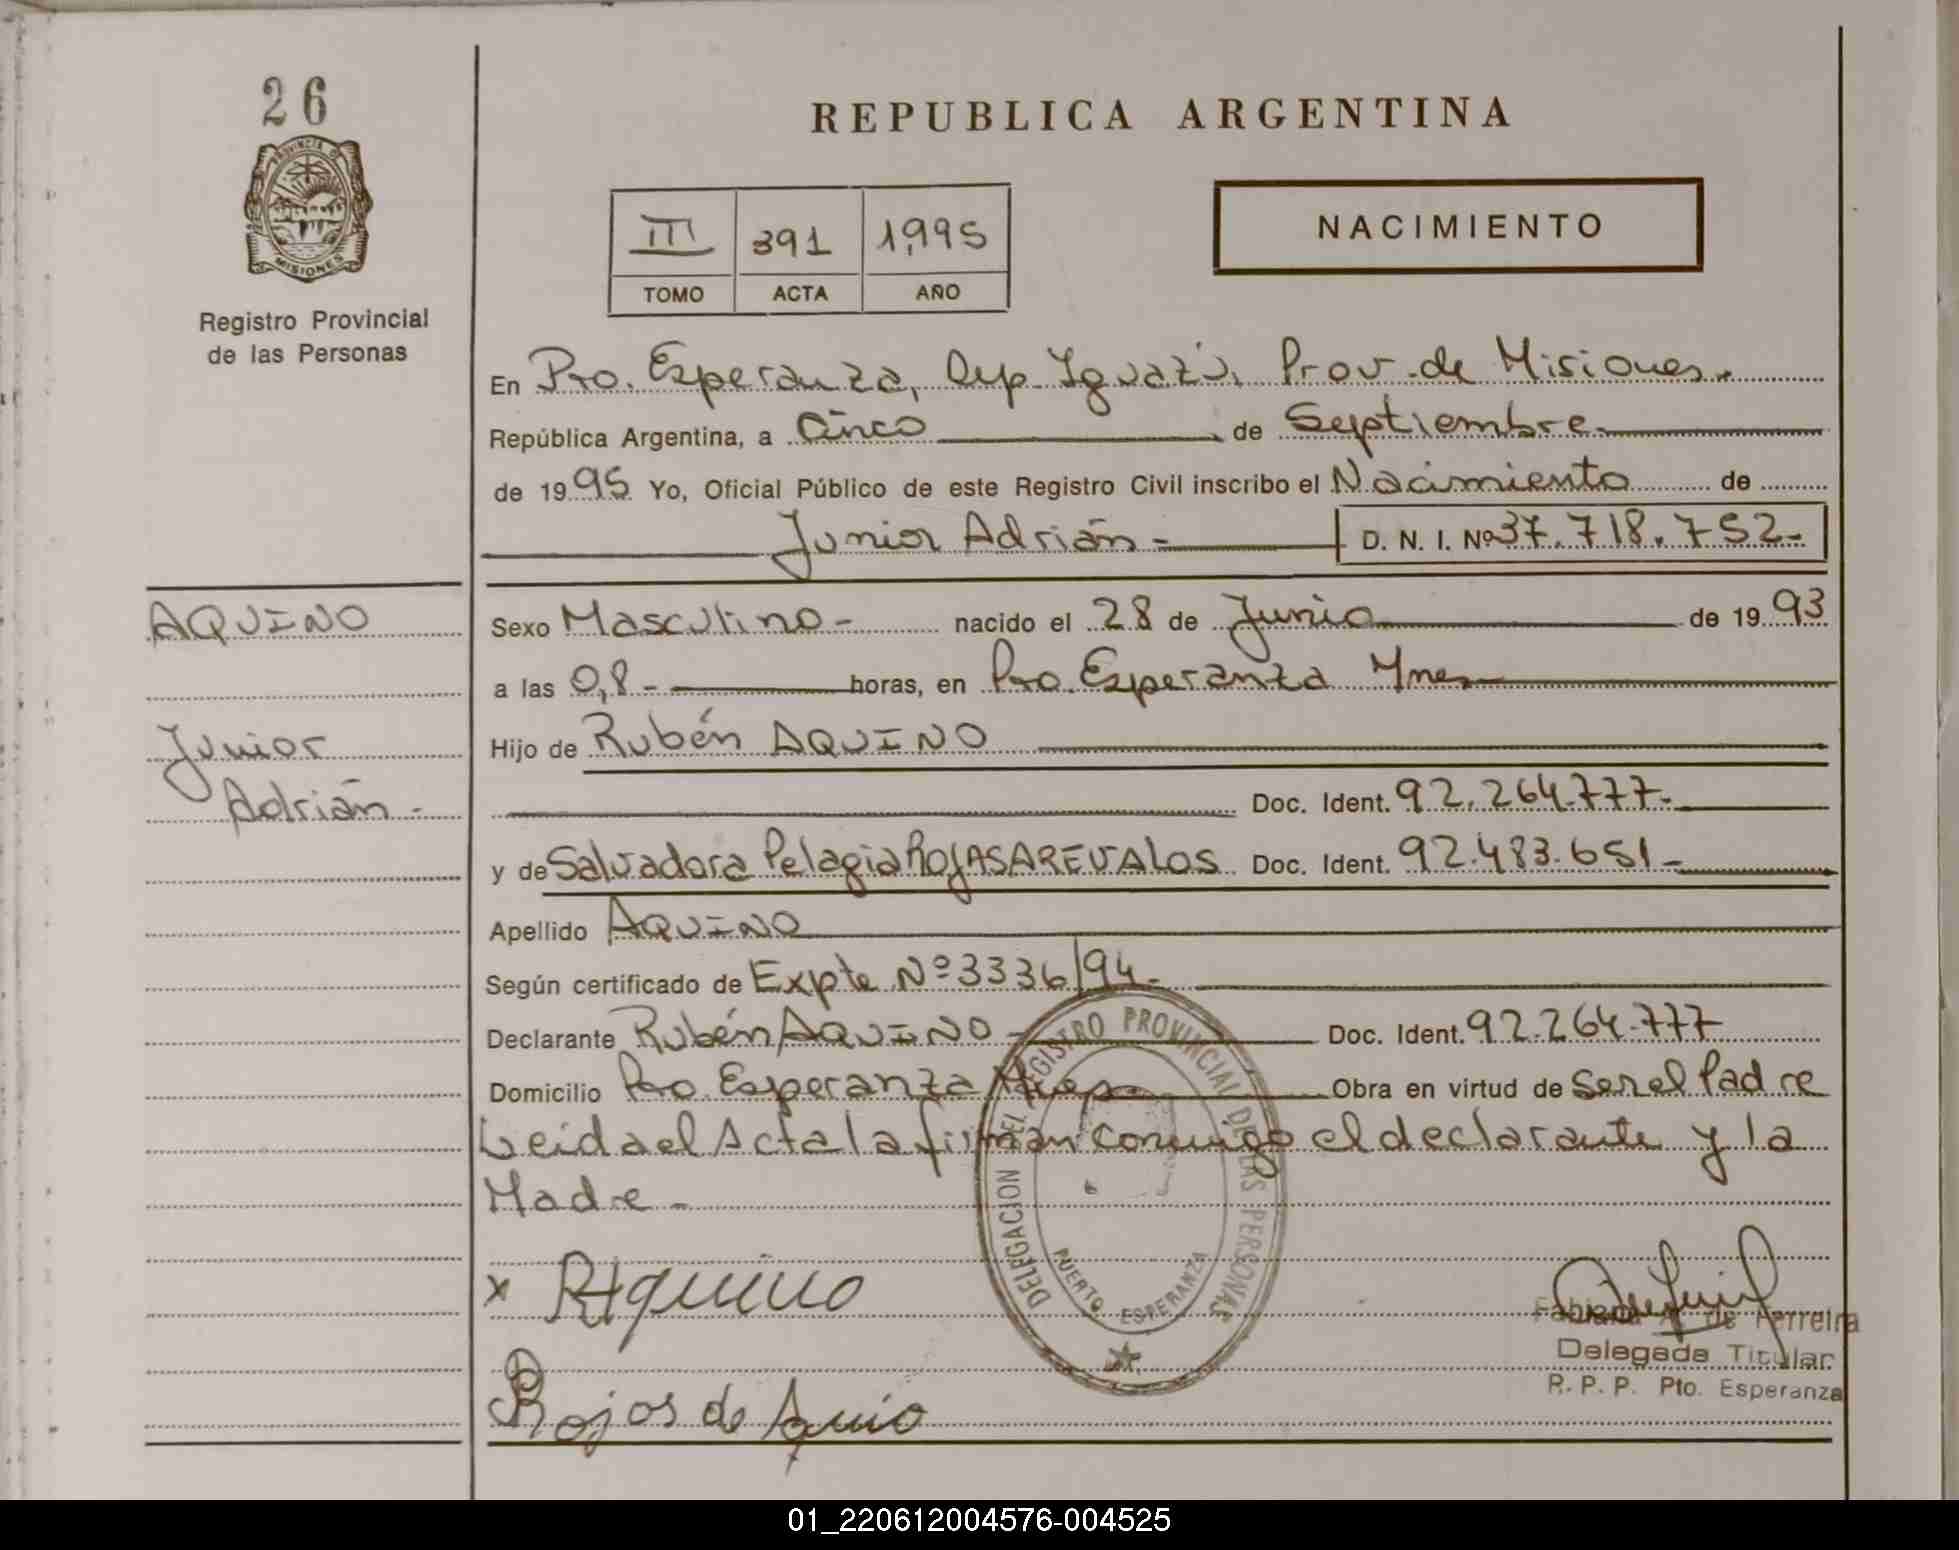 26
PROVINCIA DE
MISIONES
Registro Provincial
de las Personas
REPUBLICA ARGENTINA
III 391 1,995
TOMO ACTA AÑO
NACIMIENTO
En Pto. Esperanza, Dep. Iguazú, Prov. de Misiones.
República Argentina, a Cinco de Septiembre.
de 1995 Yo, Oficial Público de este Registro Civil inscribo el Nacimiento de
Junior Adrián - D. N. I. Nº 37.718.752-
AQUINO
Junior
Adrián -
Sexo Masculino - nacido el 28 de Junio de 1993
a las 0,8 - horas, en Pto. Esperanza Mnes
Hijo de Rubén AQUINO
Doc. Ident. 92.264.777-
y de Salvadora Pelagia ROJAS AREVALOS Doc. Ident. 92.483.651-
Apellido AQUINO
Según certificado de Expte Nº 3336/94-
Declarante Rubén AQUINO - Doc. Ident. 92.264.777
Domicilio Pto. Esperanza Mnes- Obra en virtud de Ser el Padre
Leida el Acta la firman conmigo el declarante y la
Madre -
DELEGACION DEL REGISTRO PROVINCIAL DE LAS PERSONAS
PUERTO ESPERANZA
x RAquino
Rojas de
de Ferreira
Delegada Titular
R. P. P. Pto. Esperanza
01_220612004576-004525